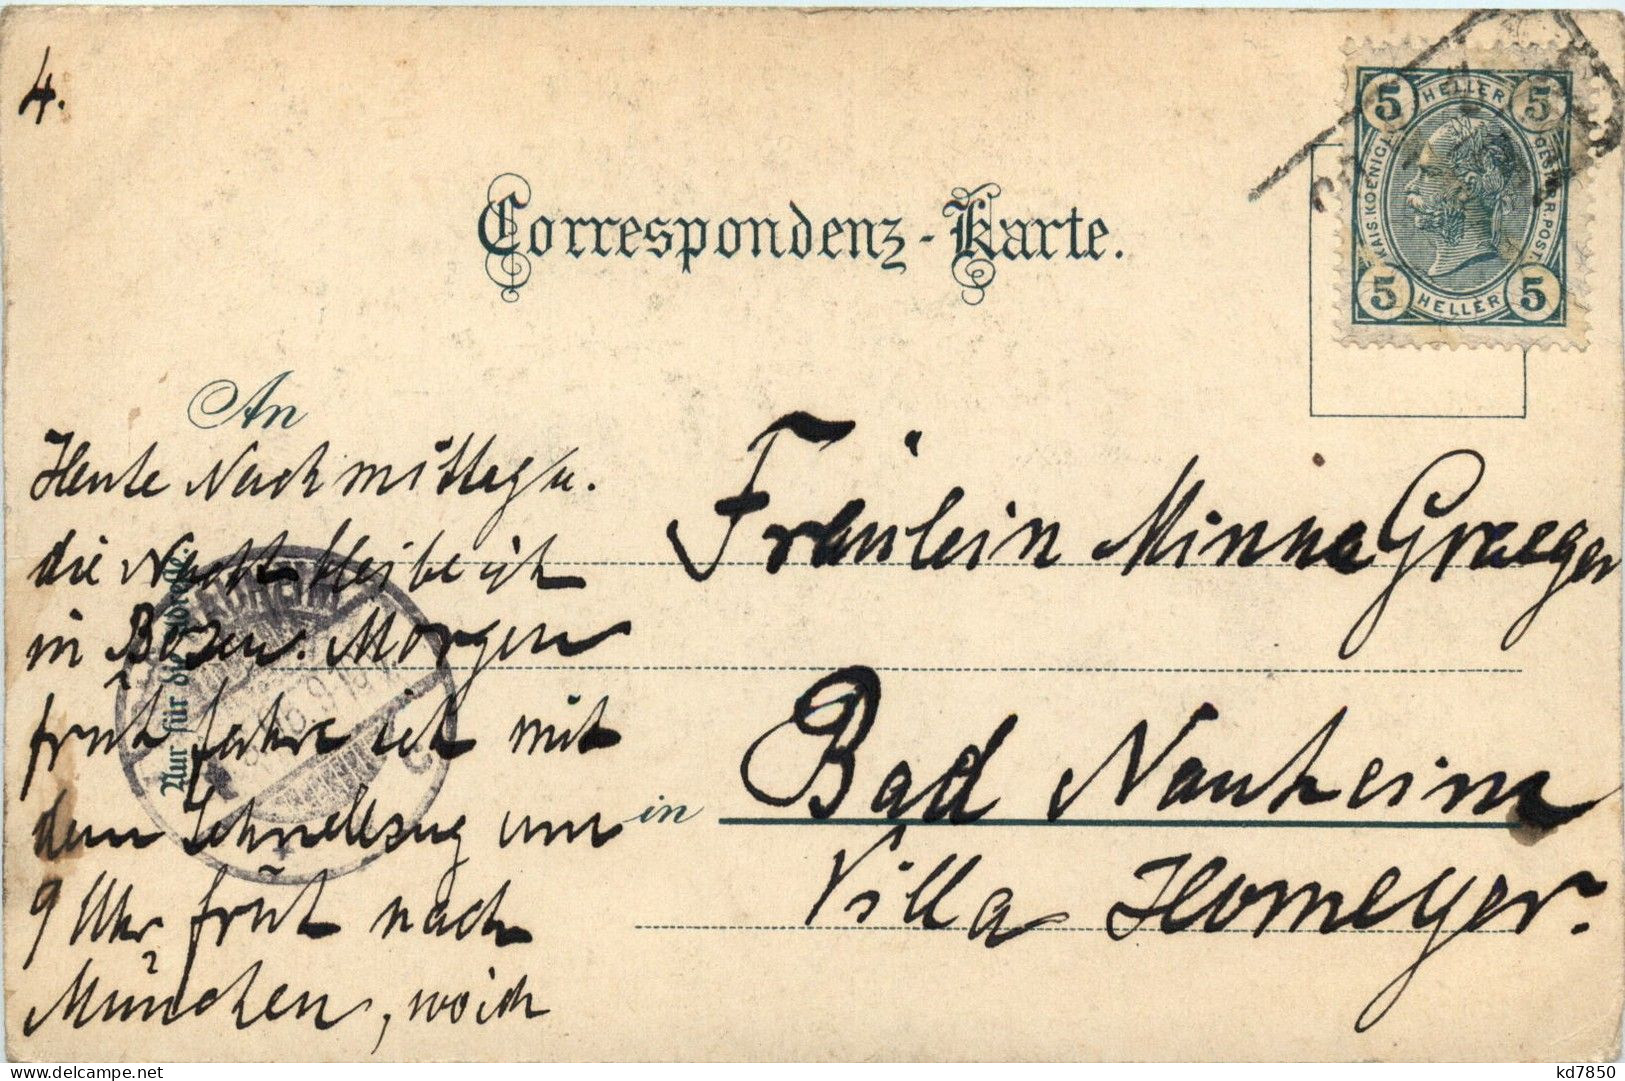 4.
5 HELLER 5
KAIS. KOENIGL. OESTERR. POST.
5 HELLER 5
Correspondenz-Karte.
An
Heute Nachmittag u.
die Nacht bleibe ich
in Bozen. Morgen
früh fahre ich mit
dem Schnellzug um
9 Uhr früh nach
München, wo ich
Nur für die Adresse.
NAUHEIM
Fräulein Minna Graeger
in Bad Nauheim
Villa Homeyer.
kd7850